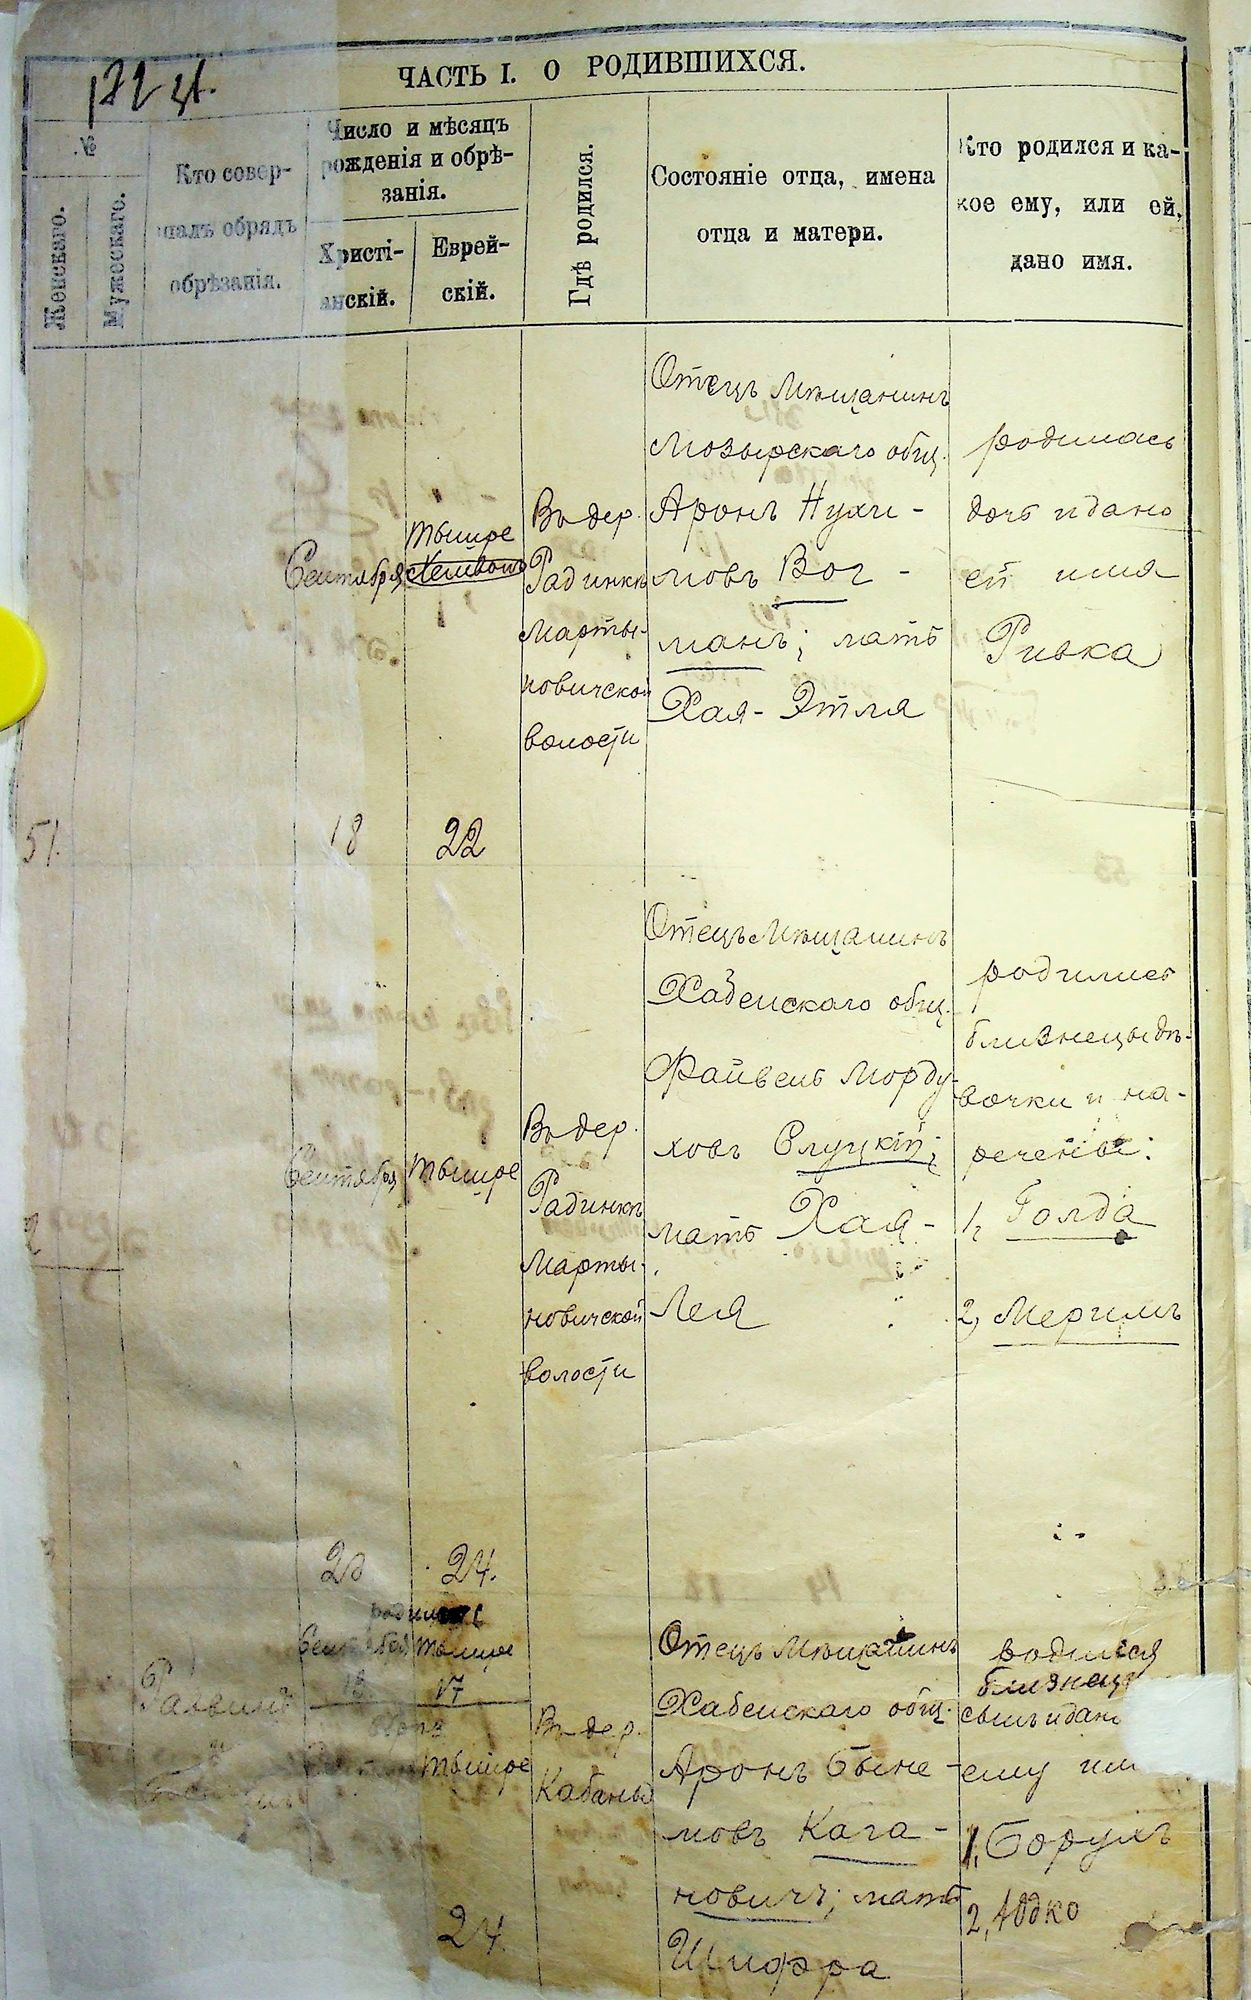 ЧАСТЬ I. О РОДИВШИХСЯ.
№
Женскаго.
Мужескаго.
Кто совер-
шалъ обрядъ
обрѣзанія.
Число и мѣсяцъ
рожденія и обрѣ-
занія.
Христі-
анскій.
Еврей-
скій.
Гдѣ родился.
Состояніе отца, имена
отца и матери.
Кто родился и ка-
кое ему, или ей,
дано имя.
51.
Сентября
18
Тышре
22
Въ дер.
Радинкѣ
Марты-
новичской
волости
Отецъ Мѣщанинъ
Мозырскаго общ.
Аронъ Нухи-
мовъ Вог-
манъ; мать
Хая-Этля
родилась
дочь и дано
ей имя
Ривка
2
Сентября
20
Тышре
24.
Въ дер.
Радинкѣ
Марты-
новичской
волости
Отецъ Мѣщанинъ
Хабенскаго общ.
Файвель Морду-
ховъ Слуцкій;
мать Хая-
Лея
родились
близнецы дѣ-
вочки и на-
речены:
1, Голда
2, Меримъ
Раввинъ
Тышре
17
Тышре
24.
Въ дер.
Кабаны
Отецъ Мѣщанинъ
Хабенскаго общ.
Аронъ Бѣне-
мовъ Кага-
новичъ; мать
Шифра
родился
близнец
сынъ и дан
ему им
1, Борухъ
2, Юдко